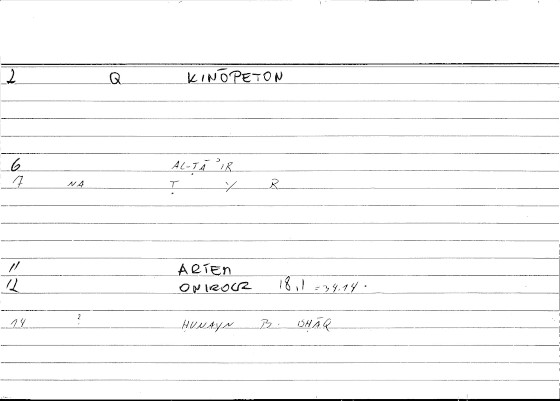 2 Q KINŌPETON
6 AL-ṬĀʾIR
7 NA Ṭ Y R
11 ARTEM
12 ONIROCR 18,1 =34.14.
14 ? HUNAYN B. ISHĀQ